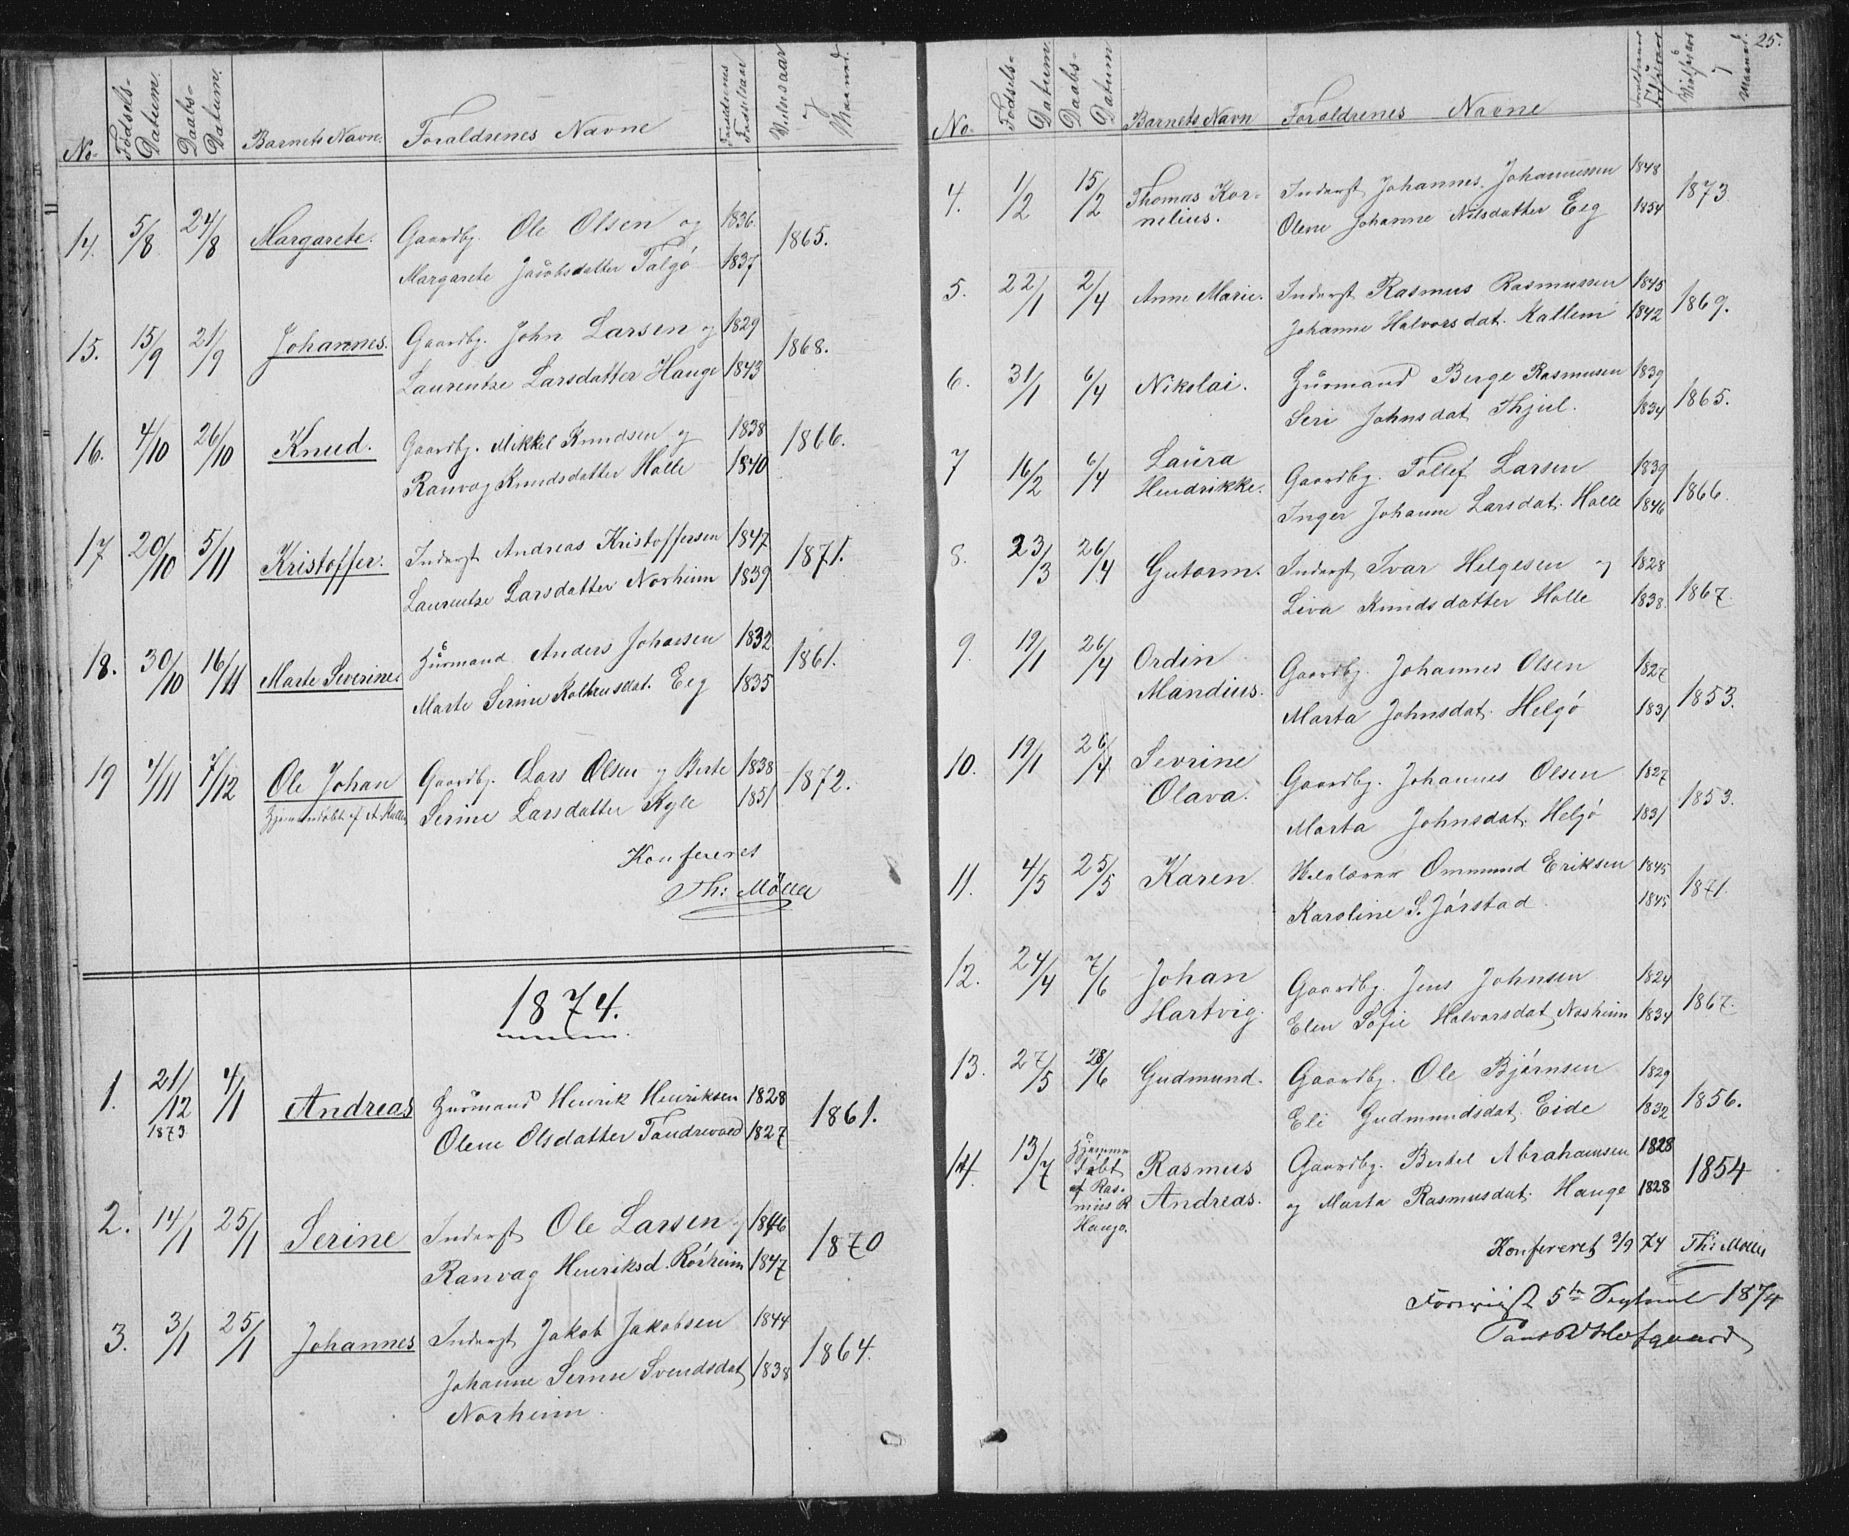 No. Fødsels-Datum. Daabs-Datum. Barnets Navn. Forældrenes Navne Forældrenes Fødselsaar Vielsesaar Maaned.
14. 5/8 24/8 Margarete. Gaardbg. Ole Olsen og 1836. 1865.
Margarete Jacobsdatter Talgø 1837
15. 15/9 21/9 Johannes. Gaardbg. John Larsen og 1829 1868.
Laurentse Larsdatter Hauge 1843
16. 4/10 26/10 Knud. Gaardbg. Mikkel Knudsen og 1838 1866.
Ranvag Knudsdatter Halle 1840
17 20/10 5/11 Kristoffer. Inderst Andreas Kristoffersen 1847 1871.
Laurentse Larsdatter Norheim 1839
18. 30/10 16/11 Marte Severine. Huusmand Anders Johansen 1832 1861.
Marte Serine Eeg 1835
19 4/11 7/12 Ole Johan Gaardbg. Lars Olsen og Berte 1838 1872.
Hjemmedøbt af A. Halle Serine Larsdatter Kyle 1851
Konfereret
Th: Møller
1874.
1. 21/12 1873 4/1 Andreas Huusmand Henrik Henriksen 1828 1861.
Olene Olsdatter 1827
2. 14/1 25/1 Serine Inderst Ole Larsen og 1846 1870
Ranvag Henriksd. Rørheim 1847
3. 3/1 25/1 Johannes Inderst Jakob Jakobsen 1844 1864.
Johanne Serine Svendsdat 1838
Norheim.
25.
No. Fødsels-Datum Daabs-Datum Barnets Navn Forældrenes Navne Fødselsaar Vielsesaar Maaned
4. 1/2 15/2 Thomas Kor- Inderst Johannes Johannessen 1848 1873
nelius. Olene Johanne Nilsdatter Eeg 1854
5. 22/1 2/4 Anne Marie. Inderst Rasmus Rasmussen 1845 1869.
Johanne Halvorsdat. Kallem 1842
6. 31/1 6/4 Nikolai. Huusmand Berge Rasmusen 1839 1865.
Seri Johnsdat Thjul. 1834
7 16/2 6/4 Laura Gaardbg. Tollef Larsen 1839 1866.
Hendrikke. Inger Johanne Larsdat. Halle 1846
8. 23/3 26/4 Gutorm. Inderst Ivar Helgesen og 1828 1867
Liva Knudsdatter Halle 1838.
9. 19/1 26/4 Ordin Gaardbg. Johannes Olsen 1827 1853.
Mandius. Marta Johnsdat. Helgø 1831
10. 19/1 26/4 Sevrine Gaardbg. Johannes Olsen 1827 1853.
Olava. Marta Johnsdat. Helgø 1831
11. 4/5 25/5 Karen. Ommund Eriksen 1845 1871.
Karoline S. Jørstad. 1845
12. 24/4 7/6 Johan Gaardbg. Jens Johnsen 1824 1867.
Hartvig. Elen Sofie Halvorsdat. Norheim 1834
13. 27/5 28/6 Gudmund. Gaardbg. Ole Bjørnsen 1829 1856.
Eli Gudmundsdat. Eide 1832
14. 13/7 Hjemme Rasmus Gaardbg. Bertel Abrahamsen 1828 1854
døbt Andreas. og Marta Rasmusdat. Hauge 1828
af Ras-
mus R
Hauge.
Konfereret 2/9 74 Th: Møller
Forevist 5te September 1874